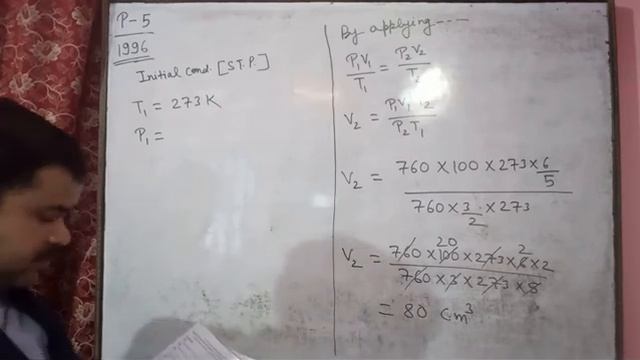 P-5
1996
Initial cond. [S.T.P.]
T₁ = 273K
P₁ =
By applying ----
P₁V₁/T₁ = P₂V₂/T
V₂ = P₁V₁ 2/P₂T₁
V₂ = 760 × 100 × 273 × 6/5
760 × 3/2 × 273
20 2
V₂ = 760 × 100 × 273 × 6 × 2
760 × 3 × 273 × 5
= 80 cm³